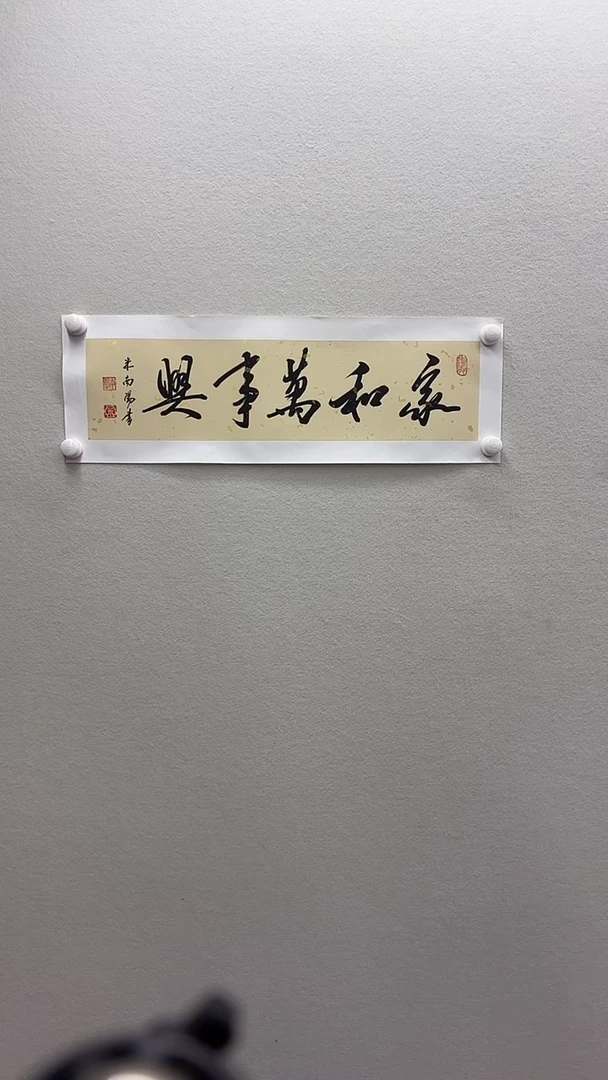 家和萬事興
米南陽書